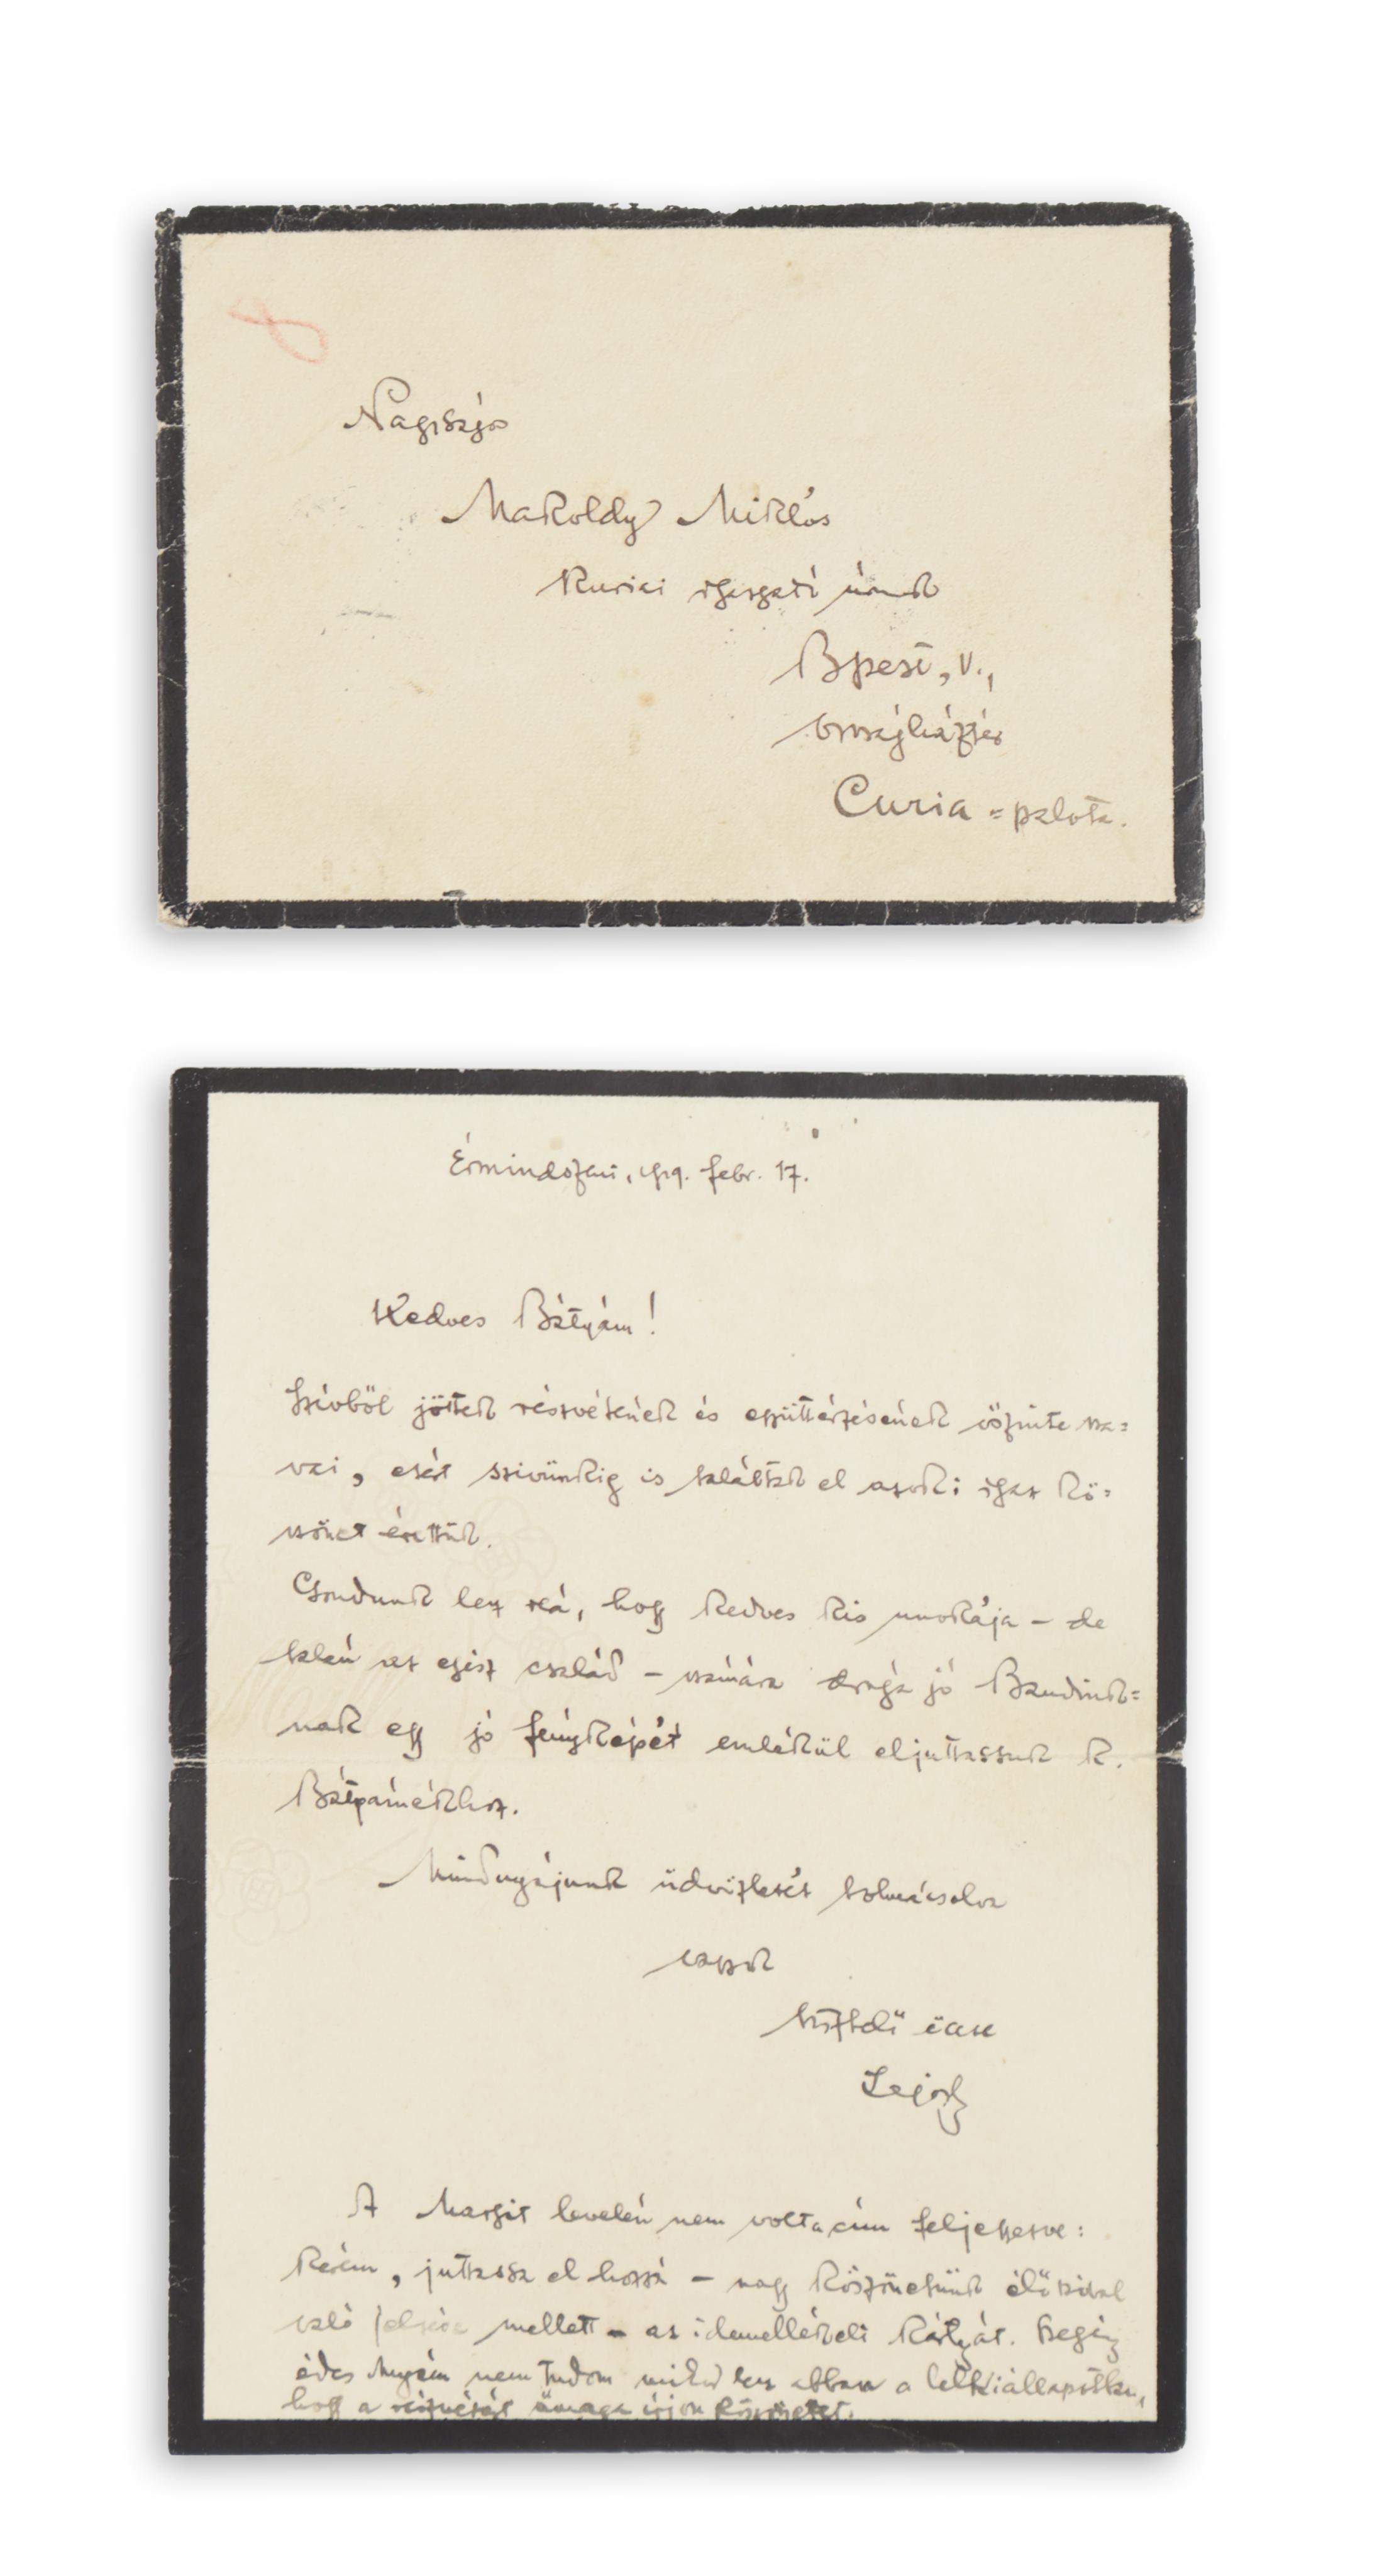 Nagyságos
Makoldy Miklós
Kuriai igazgató úrnak
Bpest, V.,
Országháztér
Curia=palota.
Érmindszent, 1919. febr. 17.
Kedves Bátyám!
Szivből jöttek részvétének és együttérzésének őszinte sza=
vai, ezért szivünkig is találtak el azok: igaz kö=
szönet érettük.
Gondunk lesz reá, hogy kedves kis unokája – de
talán az egész család – számára drága jó Bandink=
nak egy jó fényképét emlékül eljuttassuk k.
Bátyámékhoz.
Mindnyájunk üdvözletét tolmácsolva
vagyok
tisztelő öccse
Lajos
A Margit levelén nem volt a cím feljegyezve:
Kérem, juttassa el hozzá – nagy köszönetünk élőszóval
való mellett – az idemellékelt kártyát. Szegény
édes Anyám nem tudom mikor lesz abban a lelkiállapotban,
hogy a részvétét önmaga írjon köszönetet.